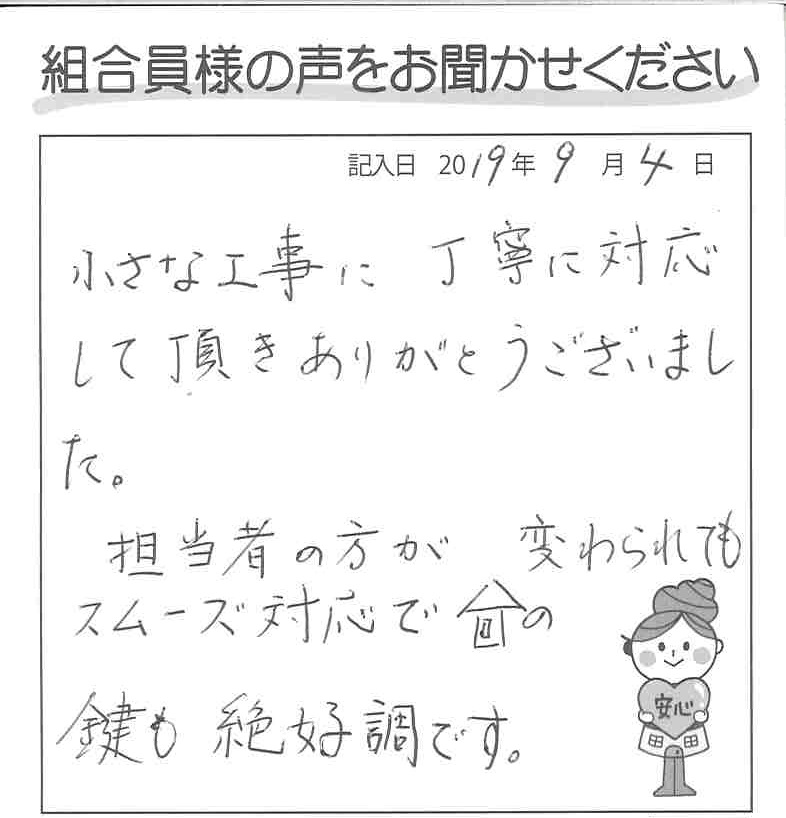 組合員様の声をお聞かせください
記入日 2019年 9月 4日
小さな工事に 丁寧に対応
して頂きありがとうございまし
た。
担当者の方が 変わられても
スムーズ対応で の
鍵も 絶好調です。
安心